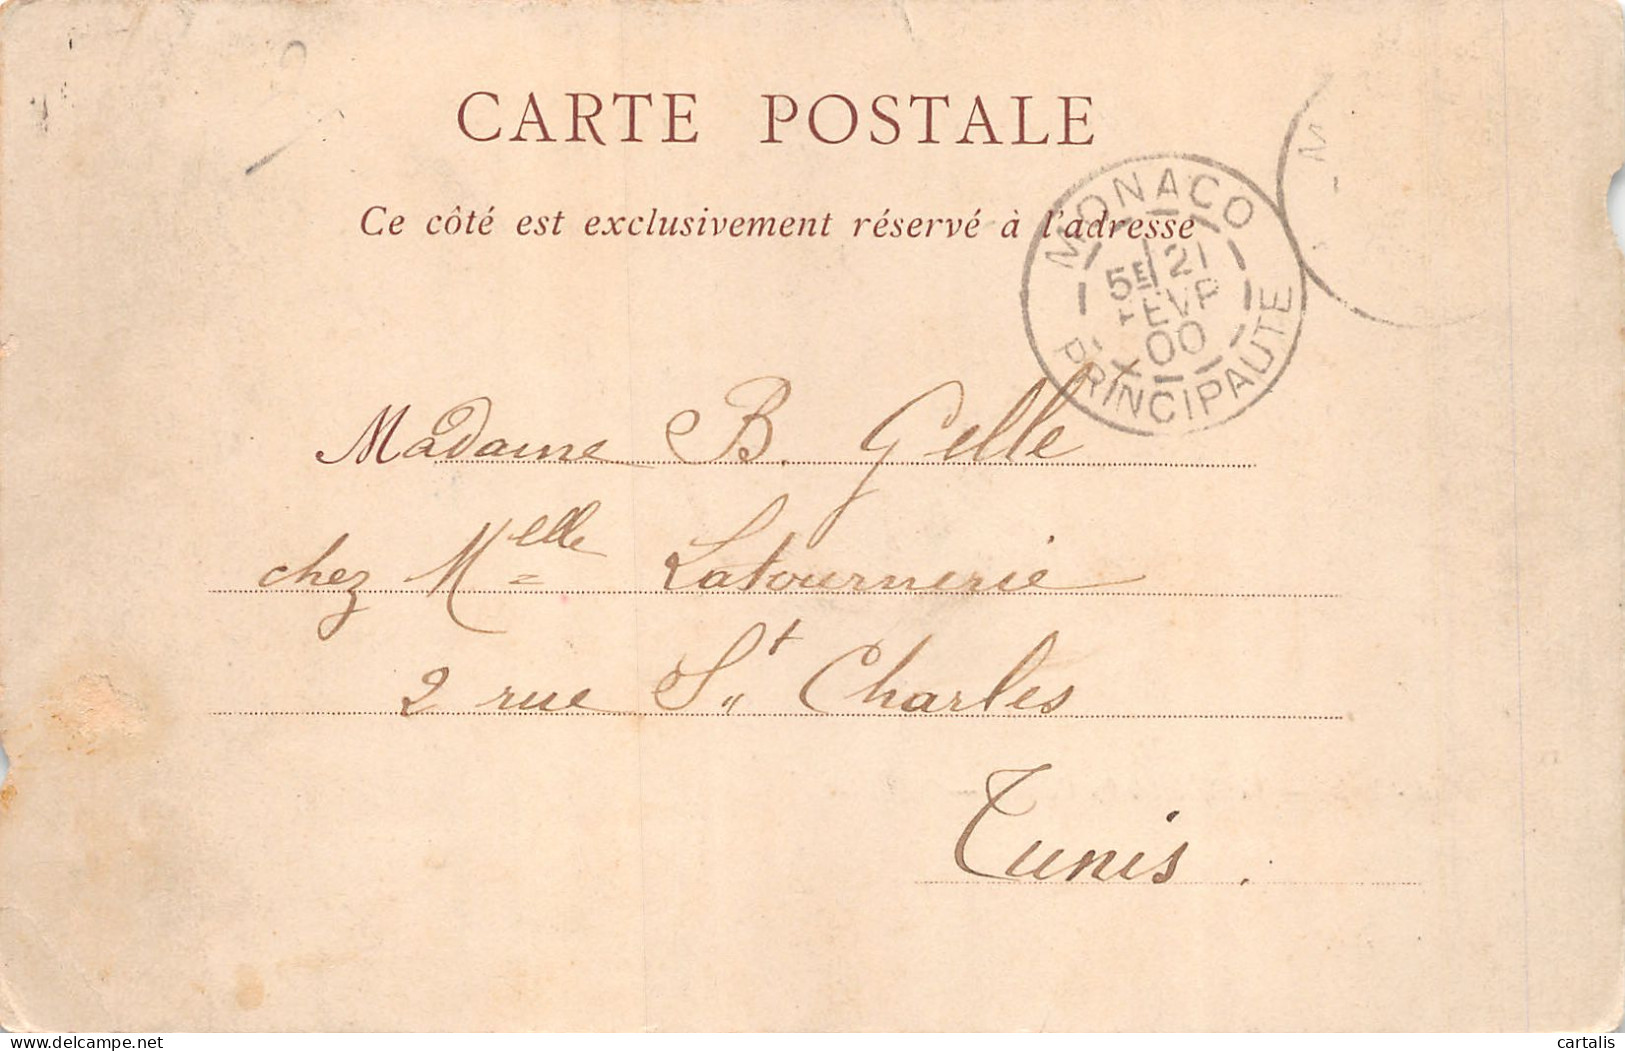 CARTE POSTALE
Ce côté est exclusivement réservé à l'adresse
MONACO
5E 21
FEVR
00
PRINCIPAUTE
M
Madame B. Gelle
chez Melle Latournerie
2 rue St Charles
Tunis.
delcampe.net
cartalis